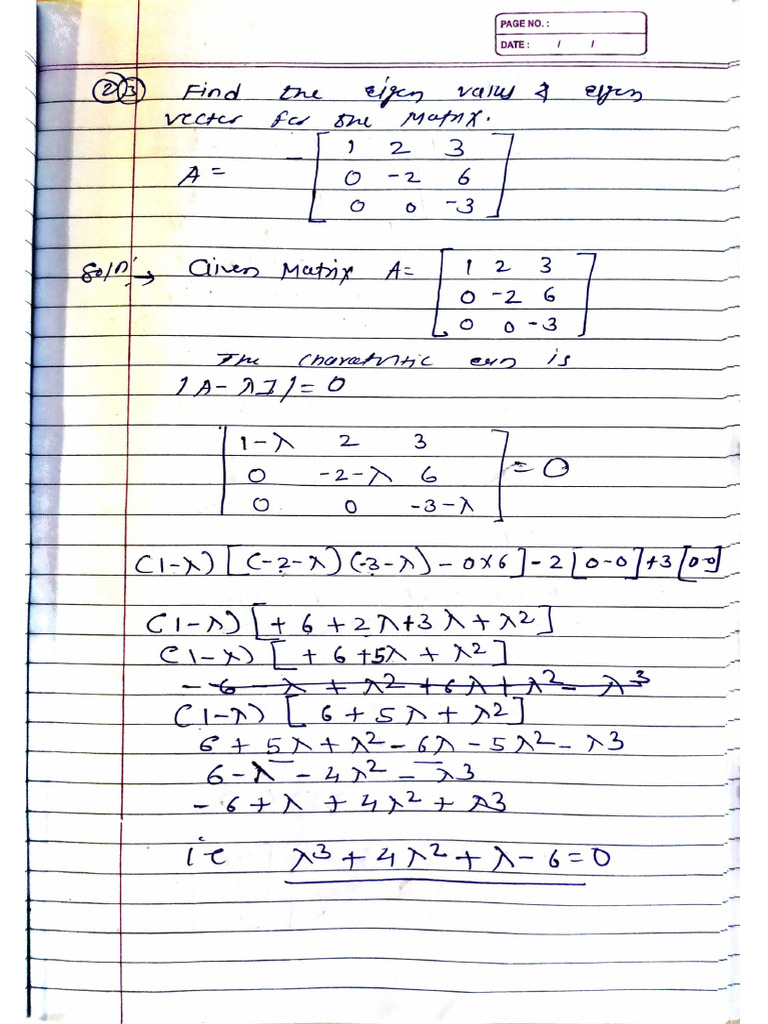 PAGE NO. :
DATE : / /
(2)(3) Find the eigen value & eigen
vector for the Matrix.
A = [1 2 3
0 -2 6
0 0 -3]
Soln → Given Matrix A = [1 2 3
0 -2 6
0 0 -3]
The is
|A-λI| = 0
|1-λ 2 3
0 -2-λ 6
0 0 -3-λ| = 0
(1-λ)[(-2-λ)(-3-λ) - 0×6] - 2[0-0] + 3[0-0]
(1-λ)[+6+2λ+3λ+λ²]
(1-λ)[+6+5λ+λ²]
-6 - λ + λ² + 6λ + λ² - λ³
(1-λ)[6+5λ+λ²]
6+5λ+λ²-6λ-5λ²-λ3
6-λ-4λ²-λ3
-6+λ+4λ²+λ3
ie λ3+4λ²+λ-6=0